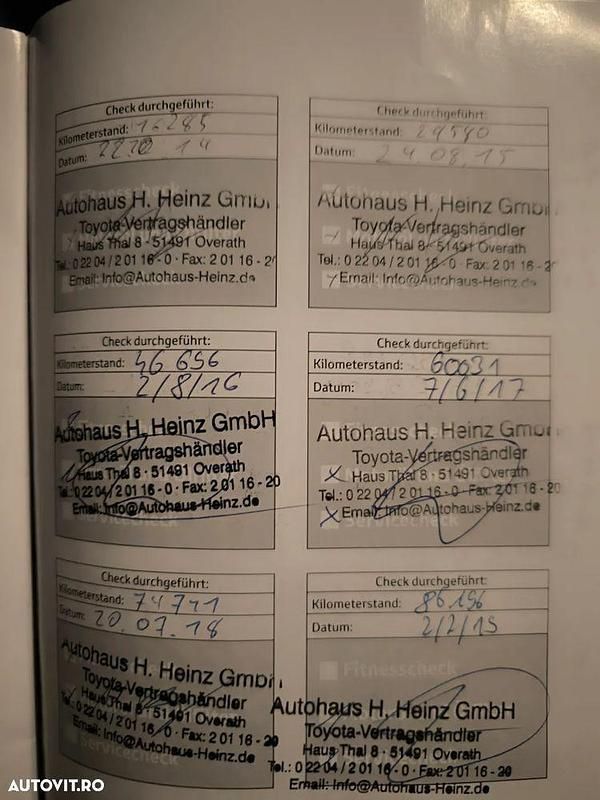 Check durchgeführt:
Kilometerstand: 16285
Datum: 14
Autohaus H. Heinz GmbH
Toyota-Vertragshändler
Haus Thal 8 · 51491 Overath
Tel.: 0 22 04 / 2 01 16 - 0 · Fax: 2 01 16 - 2
Email: Info@Autohaus-Heinz.de
Check durchgeführt:
Kilometerstand: 29580
Datum: 24 08. 15
Autohaus H. Heinz Gmb
Toyota-Vertragshändler
Haus Thal 8 · 51491 Overath
Tel.: 0 22 04 / 2 01 16 - 0 · Fax: 2 01 16 - 2
Email: Info@Autohaus-Heinz.de
Check durchgeführt:
Kilometerstand: 46 656
Datum: 2/8/16
Autohaus H. Heinz GmbH
Toyota-Vertragshändler
Haus Thal 8 · 51491 Overath
Tel.: 0 22 04 / 2 01 16 - 0 · Fax: 2 01 16 - 20
Email: Info@Autohaus-Heinz.de
Check durchgeführt:
Kilometerstand: 60031
Datum: 7/6/17
Autohaus H. Heinz GmbH
Toyota-Vertragshändler
Haus Thal 8 · 51491 Overath
Tel.: 0 22 04 / 2 01 16 - 0 · Fax: 2 01 16 - 20
Email: Info@Autohaus-Heinz.de
Servicecheck
Check durchgeführt:
Kilometerstand: 74741
Datum: 20.07.18
Autohaus H. Heinz GmbH
Toyota-Vertragshändler
Haus Thal 8 · 51491 Overath
Tel.: 0 22 04 / 2 01 16 - 0 · Fax: 2 01 16 - 20
Email: Info@Autohaus-Heinz.de
Check durchgeführt:
Kilometerstand: 86156
Datum: 2/7/19
Fitnesscheck
Autohaus H. Heinz GmbH
Toyota-Vertragshändler
Haus Thal 8 · 51491 Overath
Tel.: 0 22 04 / 2 01 16 - 0 · Fax: 2 01 16 - 20
Email: Info@Autohaus-Heinz.de
AUTOVIT.RO